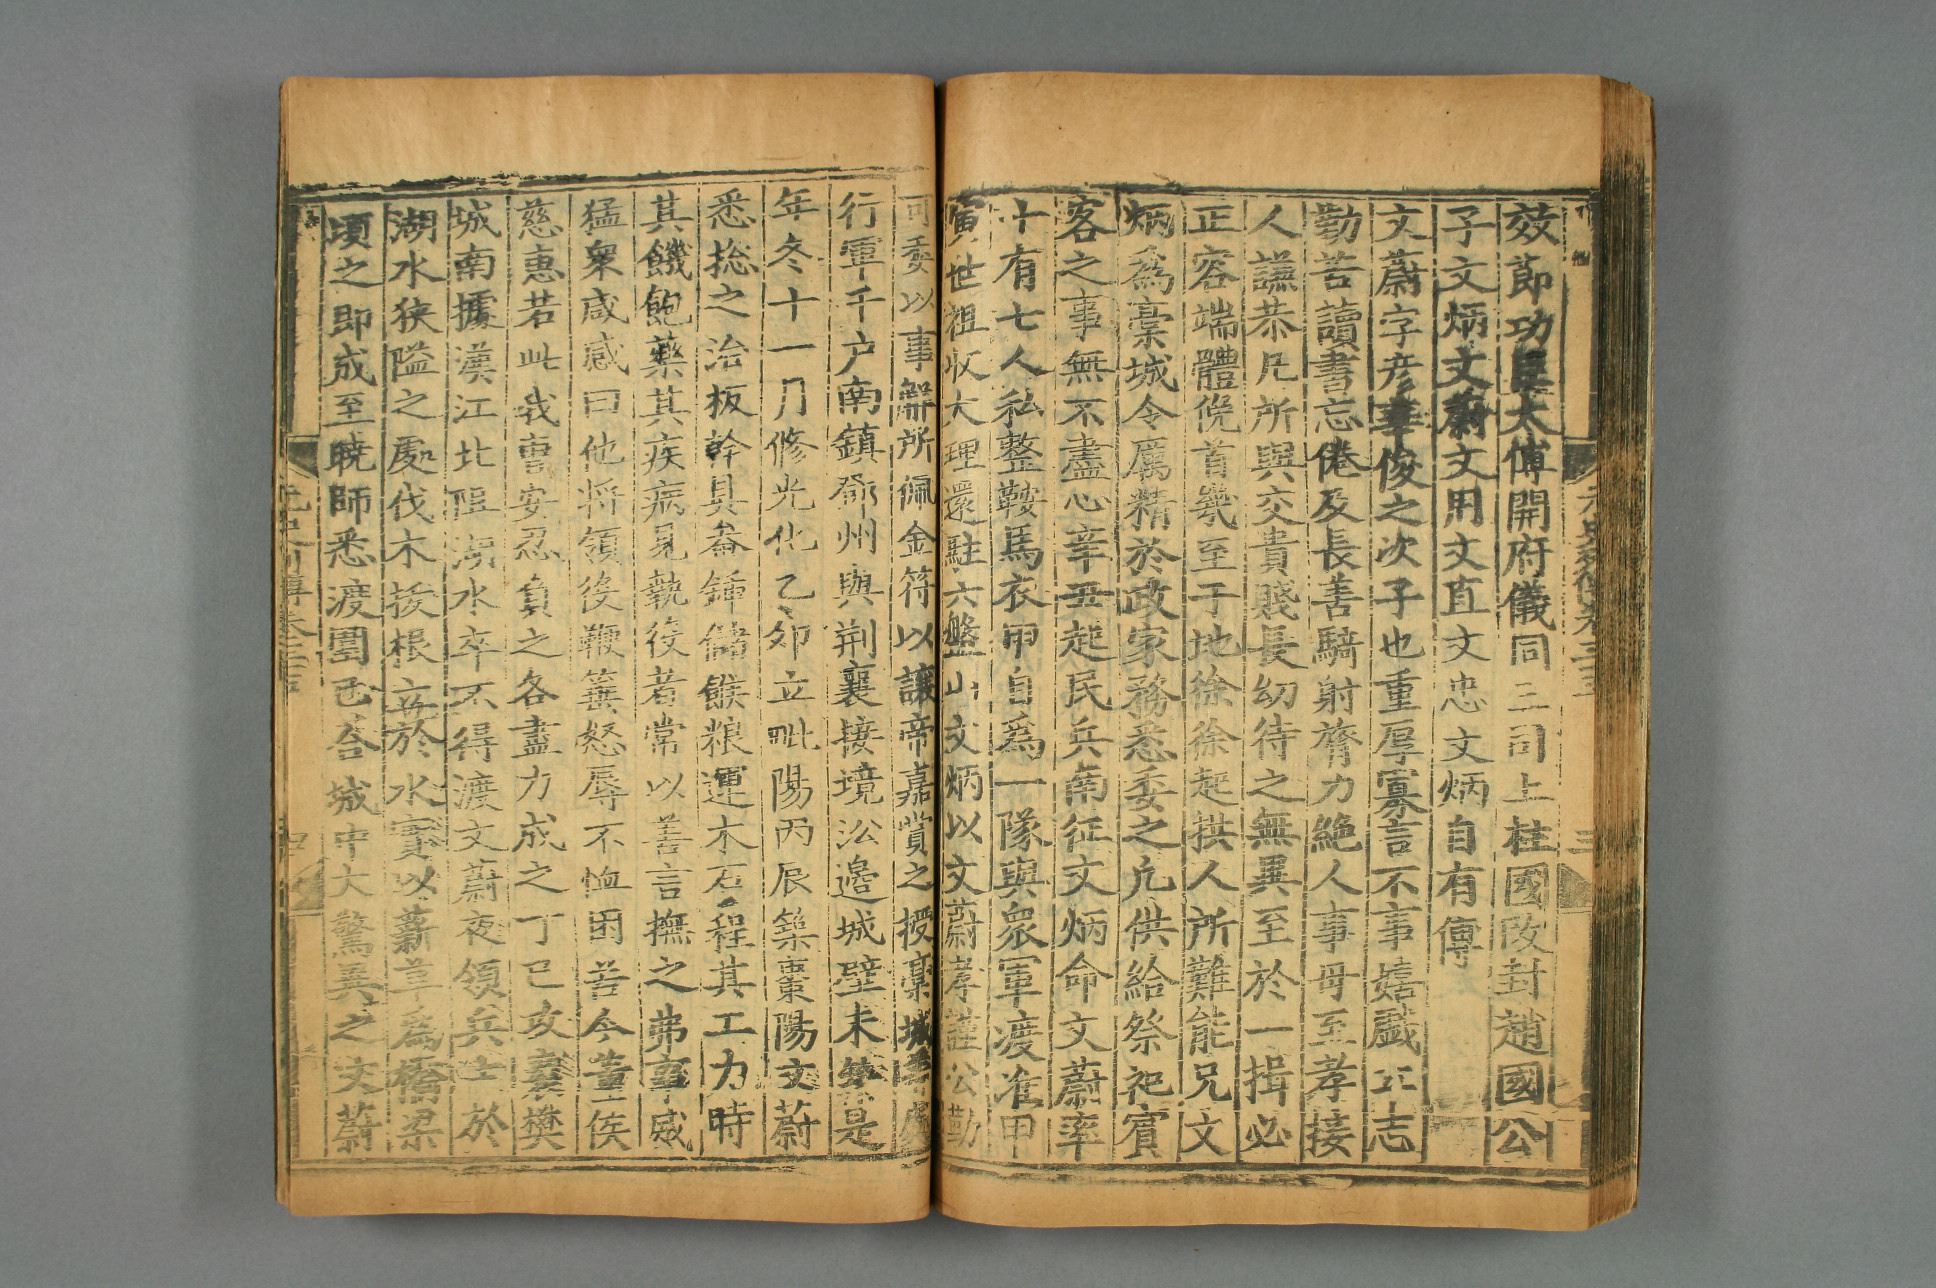 效節功臣太傅開府儀同三司上柱國改封趙國公
子文炳文蔚文用文直文忠文炳自有傳
文蔚字彦華俊之次子也重厚寡言不事嬉戲正志
勤苦讀書忘倦及長善騎射膂力絶人事母至孝接
人謙恭凡所與交貴賤長幼待之無異至於一揖必
正容端體俛首幾至于地徐徐起拱人所難能兄文
炳爲藁城令厲精於政家務悉委之凢供給祭祀賓
客之事無不盡心辛丑起民兵南征文炳命文蔚率
十有七人私整鞍馬衣甲自爲一隊與衆軍渡淮甲
寅世祖收大理還駐六盤山文炳以文蔚孝謹公勤
可委以事解所佩金符以讓帝嘉賞之授藁城等處
行軍千户南鎮鄧州與荆襄接境沿邊城壁未築是
年冬十一月修光化乙夘立毗陽丙辰築棗陽文蔚
悉捴之治板幹具畚鍤儲餱粮運木石程其工力時
其饑飽藥其疾病見執役者常以善言撫之弗事威
猛衆咸感曰他将領役鞭箠怒辱不恤困苦今董侯
慈惠若此我曹安忍負之各盡力成之丁巳攻襄樊
城南據漢江北阻湖水卒不得渡文蔚夜領兵士於
湖水狹隘之處伐木拔根立於水實以薪草爲橋梁
頃之即成至曉師悉渡圍已合城中大驚異之文蔚
元史列傳卷三十五